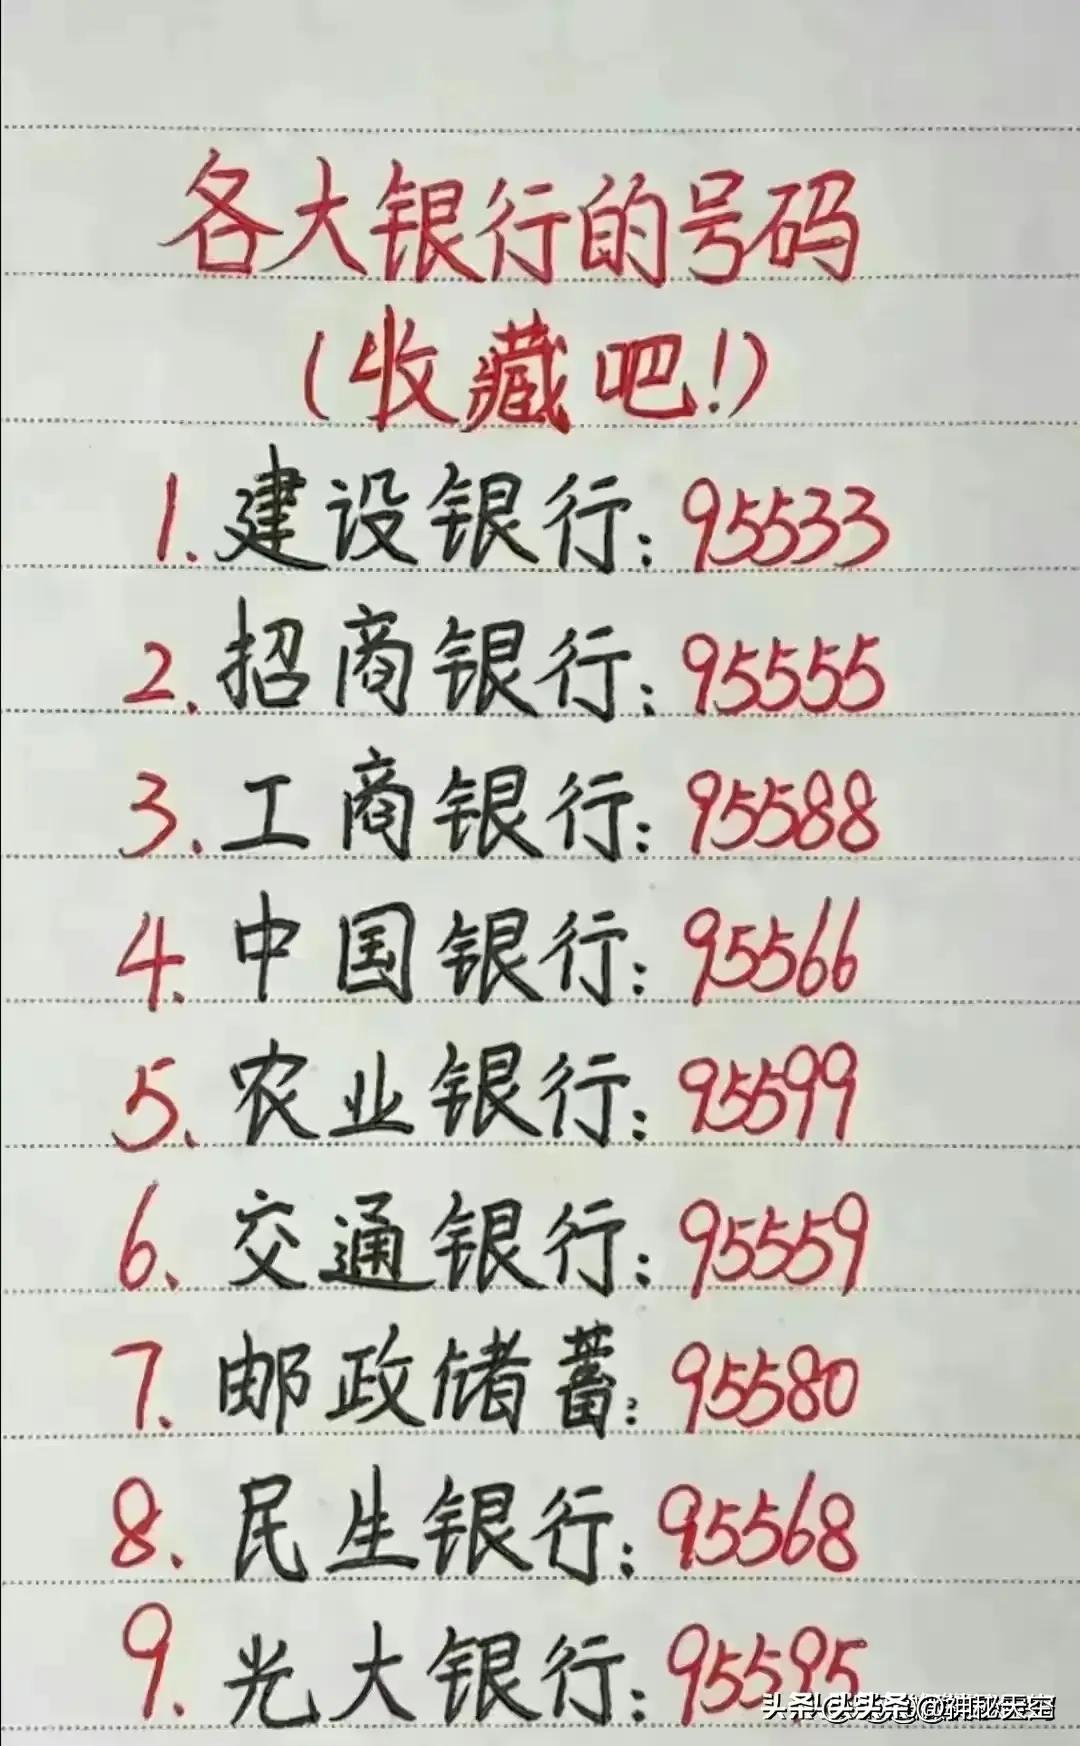 各大银行的号码
(收藏吧!)
1.建设银行:95533
2.招商银行:95555
3.工商银行:95588
4.中国银行:95566
5.农业银行:95599
6.交通银行:95559
7.邮政储蓄:95580
8.民生银行:95568
9.光大银行:95595
头条